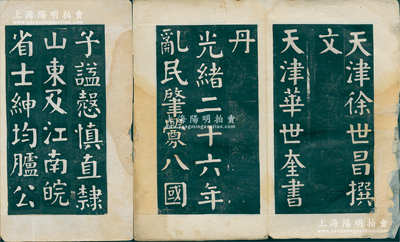 天津徐世昌撰
文
天津華世奎書
丹
光緒二十六年
亂民肇釁八國
予諡愨慎直隸
山東及江南皖
省士紳均臚公
上海陽明拍賣
上海陽明拍賣